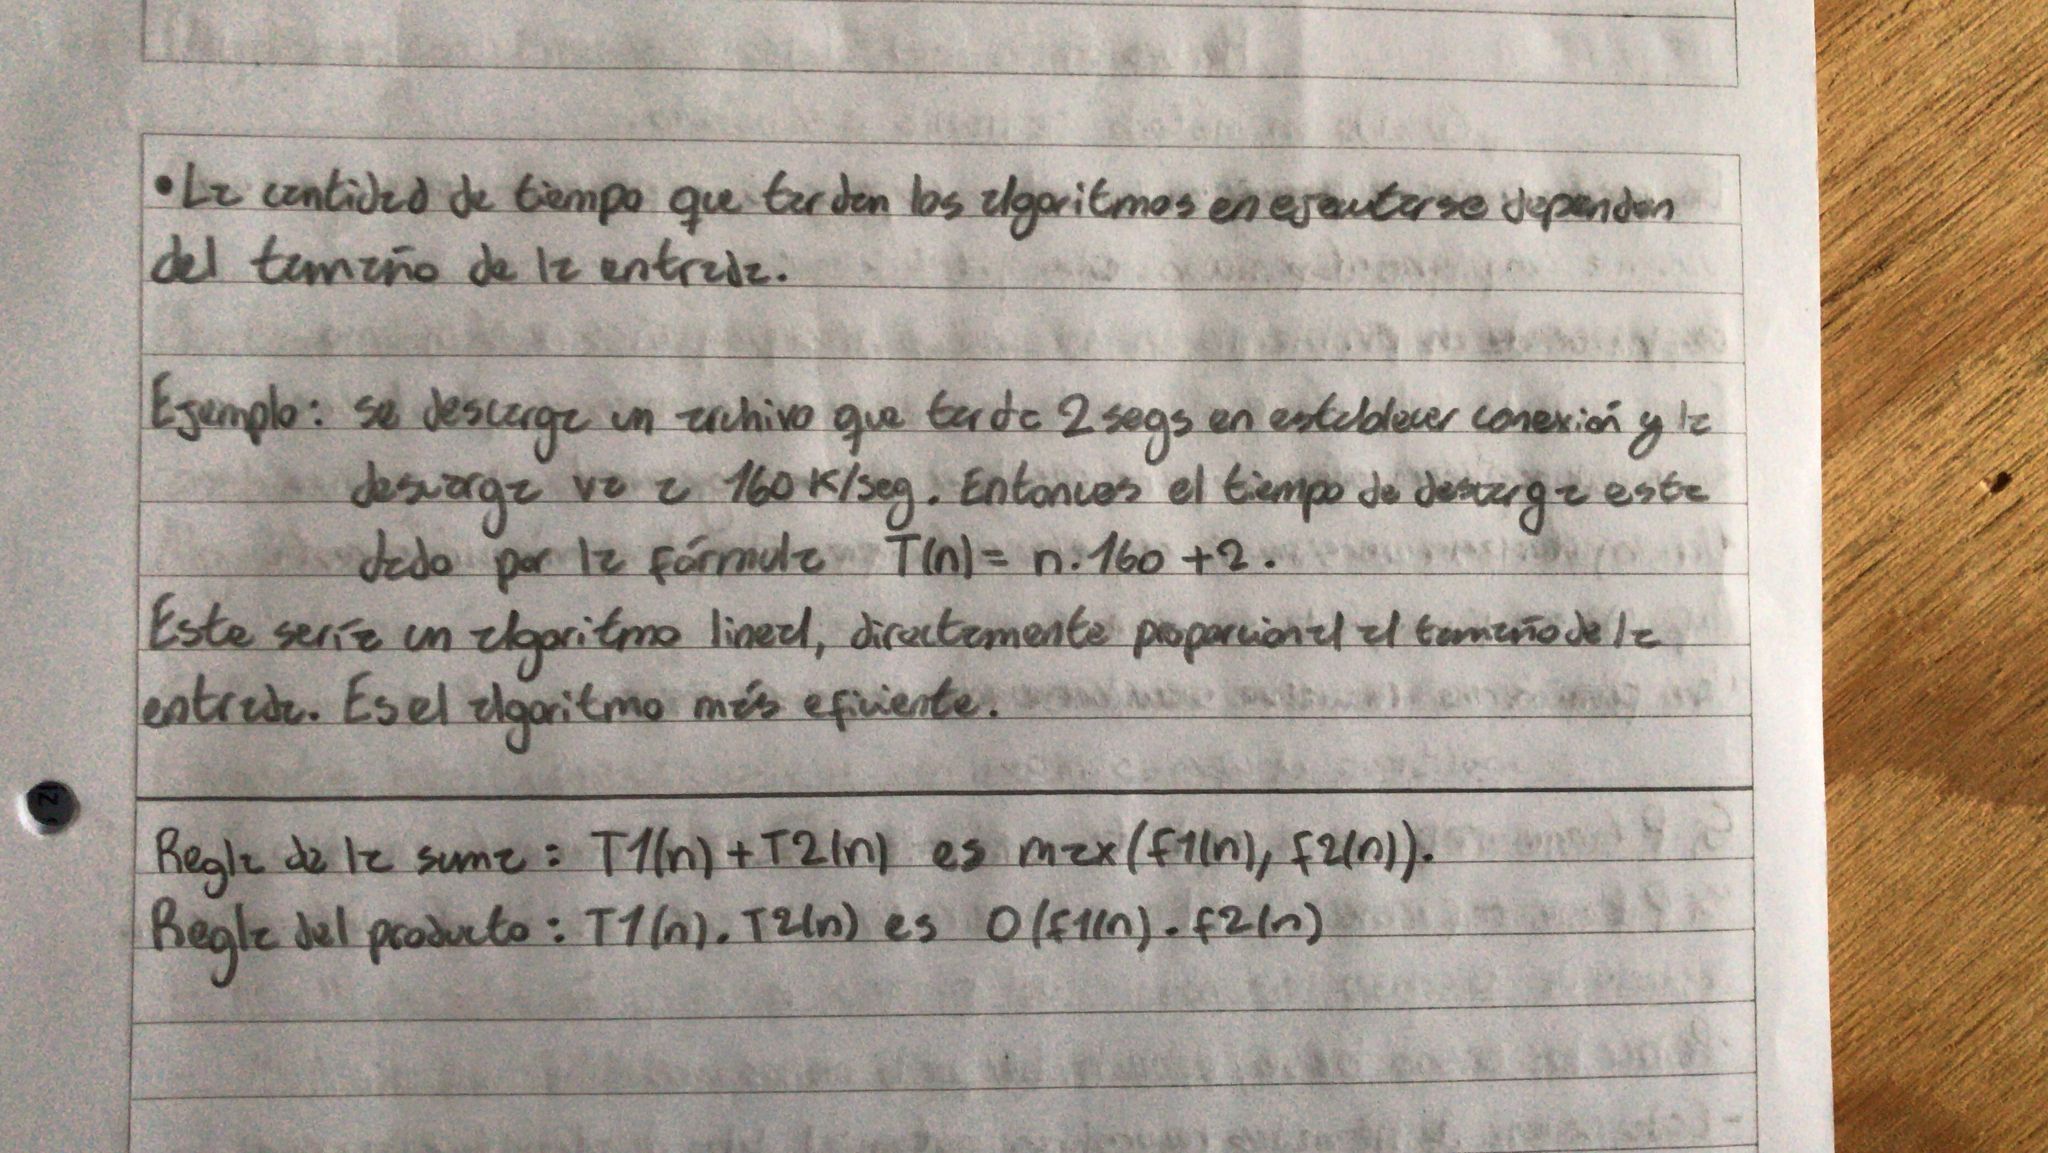 •La cantidad de tiempo que tardan los algoritmos en ejecutarse dependen
del tamaño de la entrada.
Ejemplo: se descarga un archivo que tarda 2 segs en establecer conexión y la
descarga va a 160 K/seg. Entonces el tiempo de descarga esta
dado por la fórmula T(n) = n.160 + 2.
Este sería un algoritmo lineal, directamente proporcional al tamaño de la
entrada. Es el algoritmo más eficiente.
Regla de la suma: T1(n) + T2(n) es max(f1(n), f2(n)).
Regla del producto: T1(n). T2(n) es O(f1(n). f2(n)